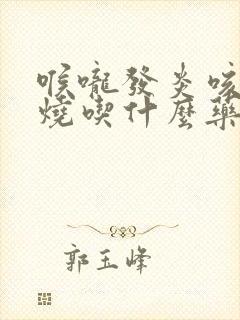 喉嚨發炎咳
燒喫什麼藥
郭玉峰